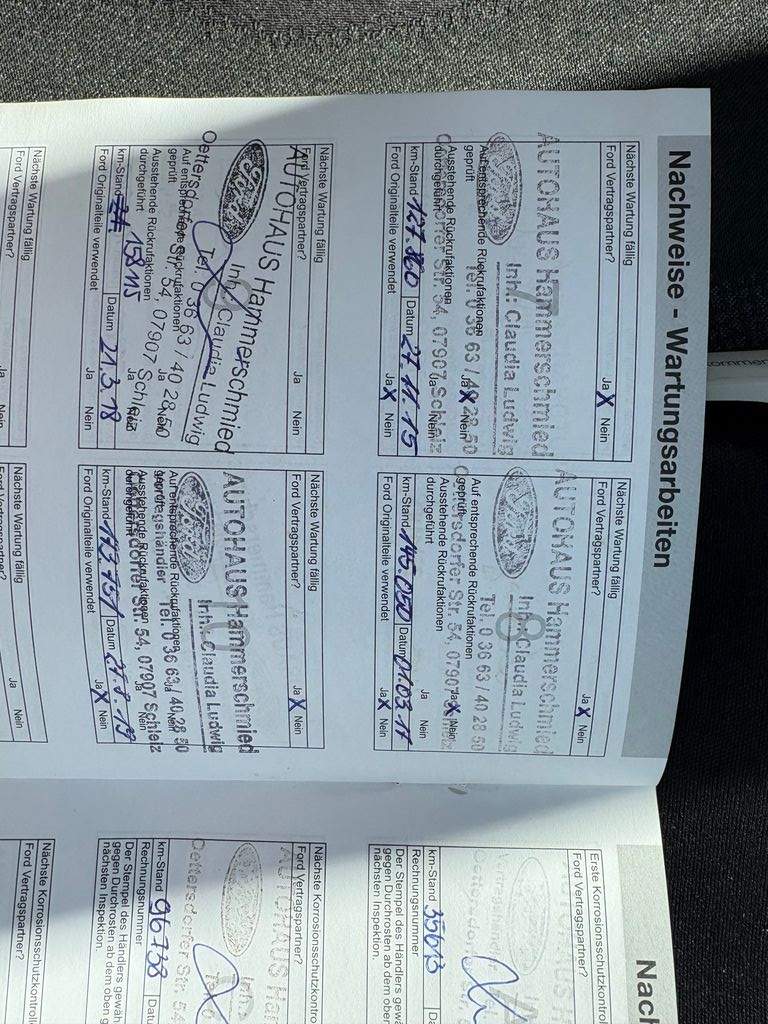 Nachweise - Wartungsarbeiten
Nächste Wartung fällig
Ford Vertragspartner?
Ja X Nein
7
AUTOHAUS Hammerschmied
Inh.: Claudia Ludwig
Tel. 0 36 63 / 40 28 50
Oettersdorfer Str. 54, 07907 Schleiz
Auf entsprechende Rückrufaktionen
geprüft
Ja X Nein
Ausstehende Rückrufaktionen
durchgeführt
Ja Nein
km-Stand 127.860 Datum 27.11.15
Ford Originalteile verwendet
Ja X Nein
Nächste Wartung fällig
Ford Vertragspartner?
Ja X Nein
8
AUTOHAUS Hammerschmied
Inh.: Claudia Ludwig
Tel. 0 36 63 / 40 28 50
Oettersdorfer Str. 54, 07907 Schleiz
Auf entsprechende Rückrufaktionen
geprüft
Ja X Nein
Ausstehende Rückrufaktionen
durchgeführt
Ja Nein
km-Stand 145.050 Datum 01.03.17
Ford Originalteile verwendet
Ja X Nein
Nächste Wartung fällig
Ford Vertragspartner?
Ja Nein
AUTOHAUS Hammerschmied
Ford
Inh.: Claudia Ludwig
Tel. 0 36 63 / 40 28 50
Oettersdorfer Str. 54, 07907 Schleiz
Auf entsprechende Rückrufaktionen
geprüft
Ja Nein
Ausstehende Rückrufaktionen
durchgeführt
Ja Nein
km-Stand 158115 Datum 21.3.18
Ford Originalteile verwendet
Ja Nein
Nächste Wartung fällig
Ford Vertragspartner?
Ja X Nein
10
AUTOHAUS Hammerschmied
Ford
Inh.: Claudia Ludwig
Tel. 0 36 63 / 40 28 50
Vertragshändler
Oettersdorfer Str. 54, 07907 Schleiz
Auf entsprechende Rückrufaktionen
geprüft
Ja Nein
Ausstehende Rückrufaktionen
durchgeführt
Ja
km-Stand Datum
Ford Originalteile verwendet
Ja X Nein
Nächste Wartung fällig
Ford Vertragspartner?
Ja Nein
Nächste Wartung fällig
Ford Vertragspartner?
Ja Nein
Nach
Erste Korrosionsschutzkontro
Ford Vertragspartner?
km-Stand 35613
Rechnungsnummer
Der Stempel des Händlers gewä
gegen Durchrosten ab dem ober
nächsten Inspektion.
Nächste Korrosionsschutzkontro
Ford Vertragspartner?
AUTOHAUS Ha
Inh.
Oettersdorfer Str. 54
km-Stand 96738 Datu
Rechnungsnummer
Der Stempel des Händlers gewäh
gegen Durchrosten ab dem oben g
nächsten Inspektion.
Nächste Korrosionsschutzkontroll
Ford Vertragspartner?